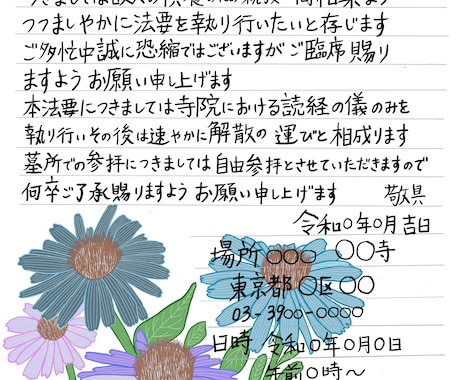 つつましやかに法要を執り行いたいと存じます
ご多忙中誠に恐縮ではございますがご臨席賜り
ますようお願い申し上げます
本法要につきましては寺院における読経の儀のみを
執り行いその後は速やかに解散の運びと相成ります
墓所での参拝につきましては自由参拝とさせていただきますので
何卒ご了承賜りますようお願い申し上げます 敬具
令和〇年〇月吉日
場所〇〇〇 〇〇寺
東京都〇区〇〇
03-39〇〇-〇〇〇〇
日時 令和〇年〇月〇日
午前〇時〜